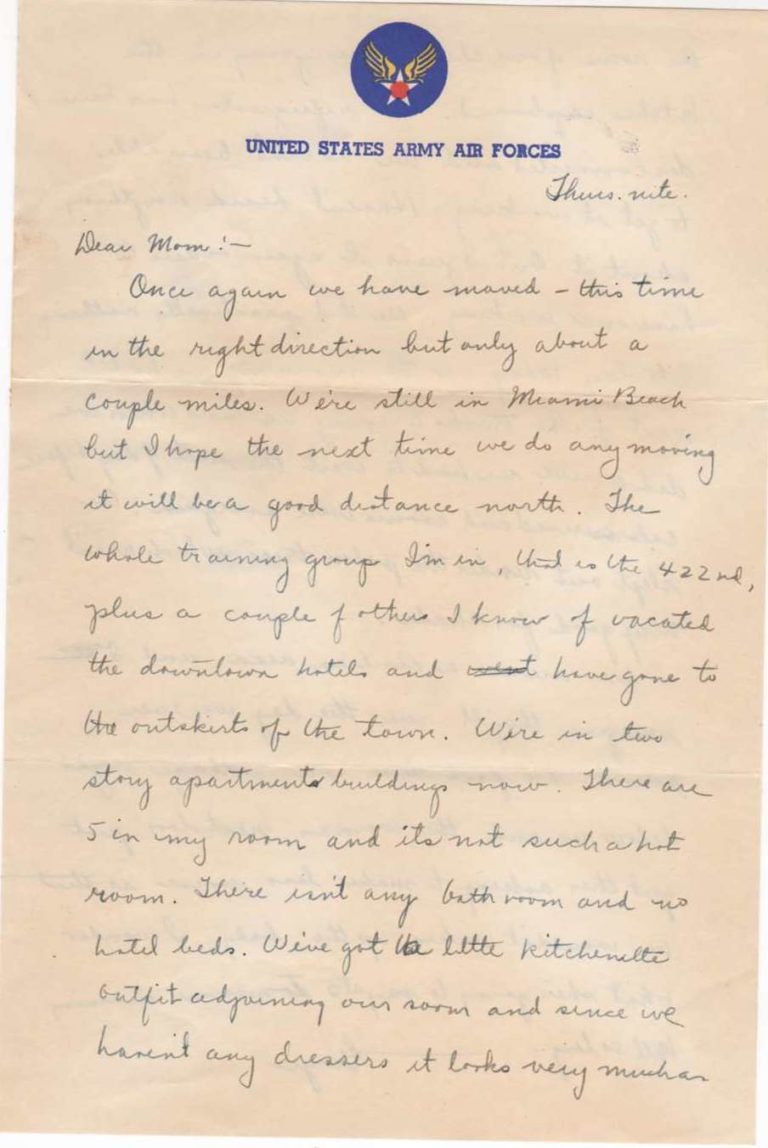 UNITED STATES ARMY AIR FORCES
Thurs. nite.
Dear Mom:—
Once again we have moved – this time
in the right direction but only about a
couple miles. We're still in Miami Beach
but I hope the next time we do any moving
it will be a good distance north. The
whole training group I'm in, that is the 422nd,
plus a couple of others I know of vacated
the downtown hotels and went have gone to
the outskirts of the town. We're in two
story apartments buildings now. There are
5 in my room and its not such a hot
room. There isn't any bath room and no
hotel beds. We've got the little kitchenette
outfit adjoining our room and since we
haven't any dressers it looks very much as